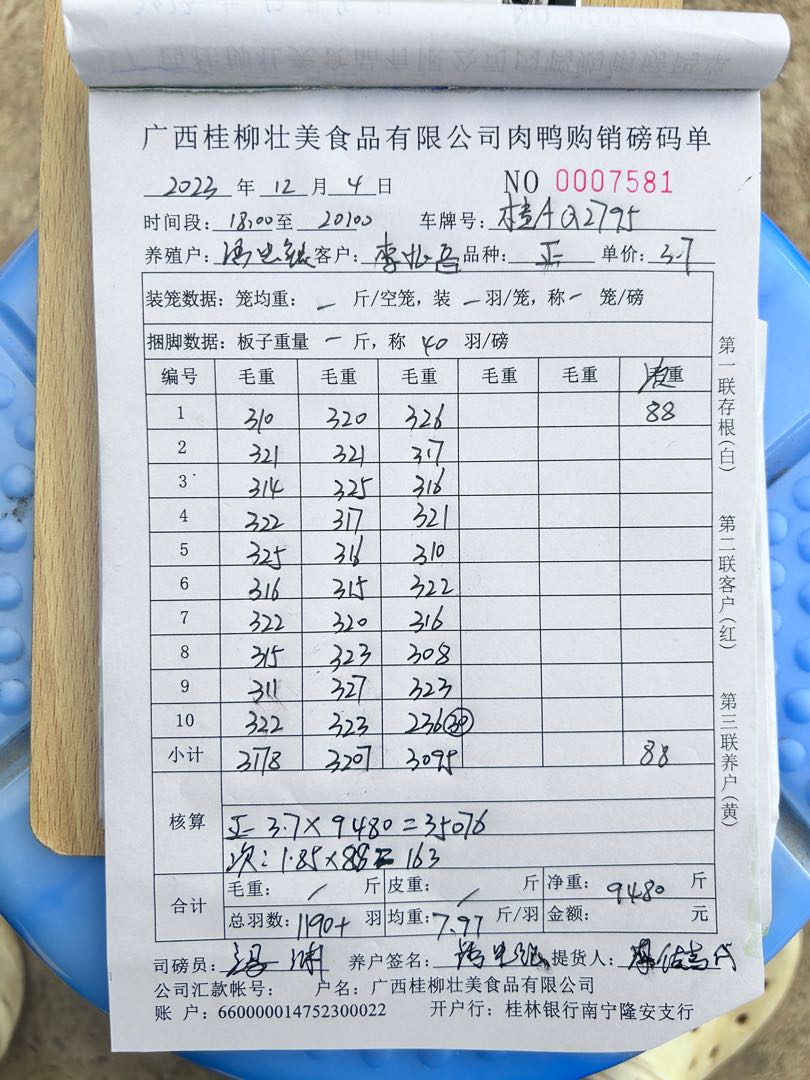 广西桂柳壮美食品有限公司肉鸭购销磅码单
2023 年 12 月 4 日 NO 0007581
时间段: 18:00 至 20:00 车牌号: 桂A Q2795
养殖户: 客户: 李 品种: 正 单价: 3.7
装笼数据: 笼均重: - 斤/空笼, 装 - 羽/笼, 称 - 笼/磅
捆脚数据: 板子重量 - 斤, 称 40 羽/磅
编号 毛重 毛重 毛重 毛重 毛重 重
1 310 320 326 88
2 321 321 317
3 314 325 316
4 322 317 321
5 325 316 310
6 316 315 322
7 322 320 316
8 315 323 308
9 311 327 323
10 322 323 236 39
小计 3178 3207 3095 88
核算
正 3.7×9480=35076
次: 1.85×88=163
合计 毛重: / 斤 皮重: / 斤 净重: 9480 斤
总羽数: 1190+ 羽 均重: 7.97 斤/羽 金额: 元
司磅员: 养户签名: 提货人:
公司汇款帐号: 户名: 广西桂柳壮美食品有限公司
账 户: 660000014752300022 开户行: 桂林银行南宁隆安支行
第一联存根(白)
第二联客户(红)
第三联养户(黄)